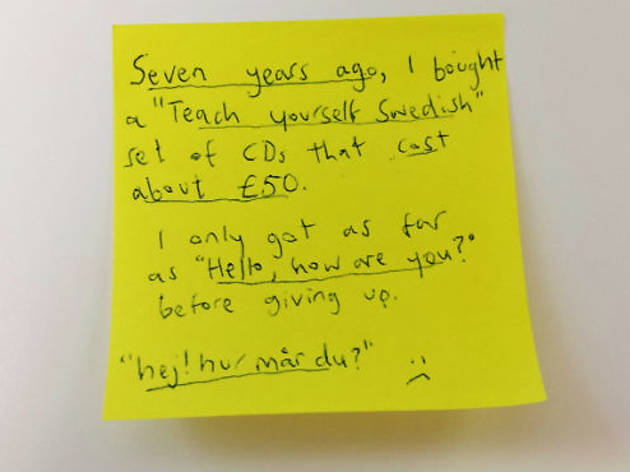 Seven years ago, I bought
a "Teach yourself Swedish"
set of CDs that cost
about £50.
I only got as far
as "Hello, how are you?"
before giving up.
"hej! hur mår du?" :(